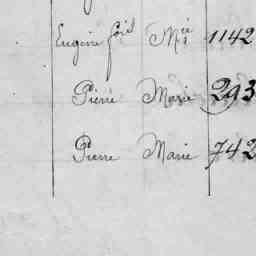 Eugénie fois Mie 1142
Pierre Marie 293
Pierre Marie 742